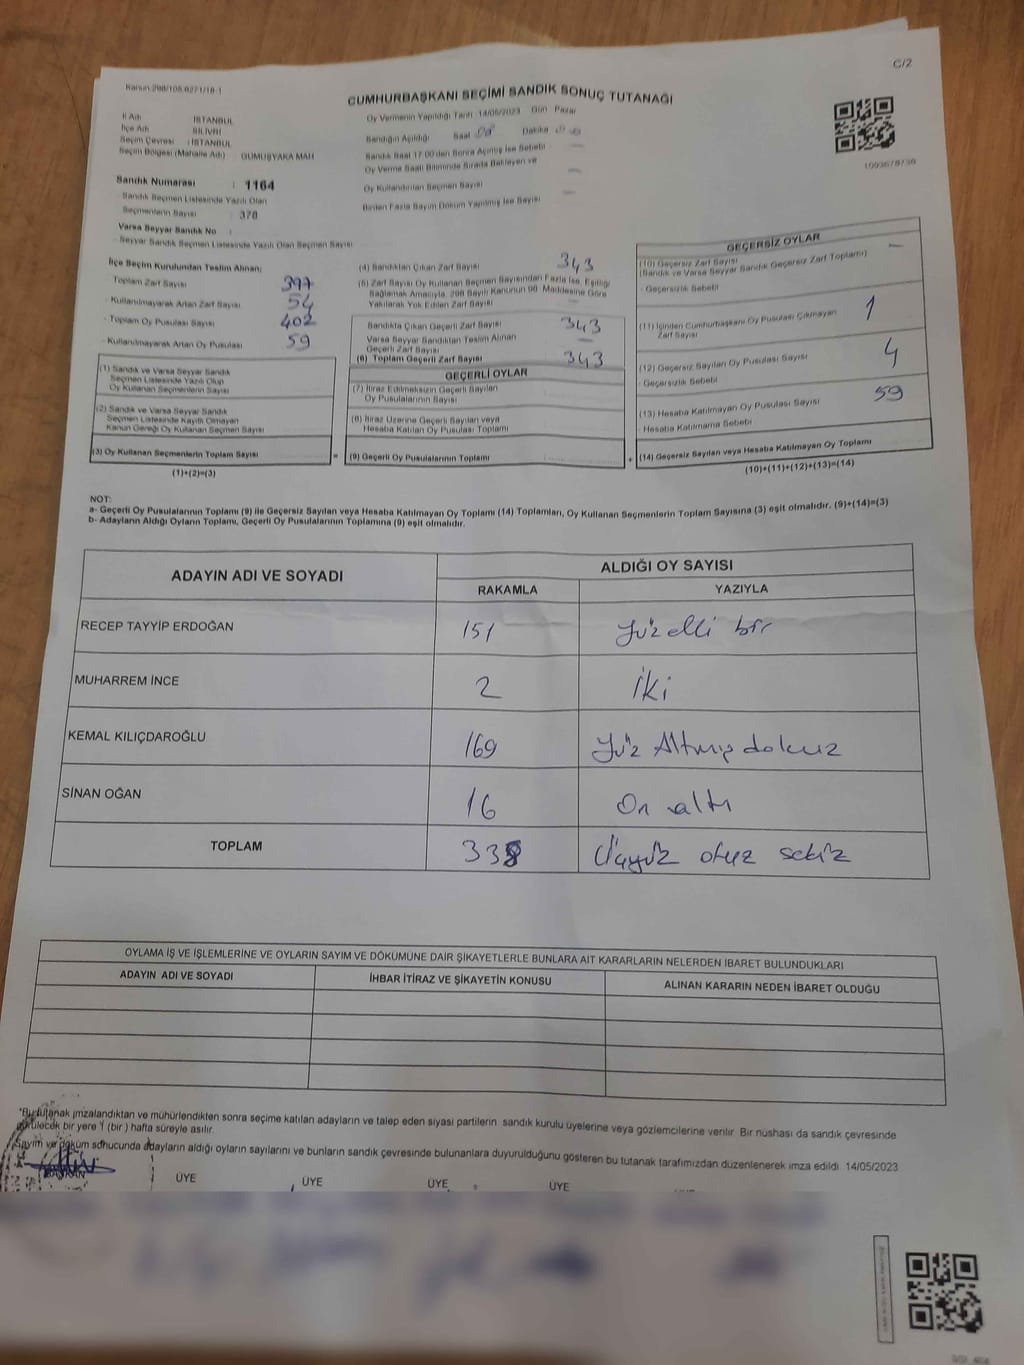 C/2
Kanun:298/105,6271/18-1
CUMHURBAŞKANI SEÇİMİ SANDIK SONUÇ TUTANAĞI
1093678736
İl Adı : İSTANBUL
İlçe Adı : SİLİVRİ
Seçim Çevresi : İSTANBUL
Seçim Bölgesi (Mahalle Adı) GÜMÜŞYAKA MAH
Sandık Numarası : 1164
- Sandık Seçmen Listesinde Yazılı Olan
Seçmenlerin Sayısı : 378
Varsa Seyyar Sandık No :
- Seyyar Sandık Seçmen Listesinde Yazılı Olan Seçmen Sayısı :
Oy Vermenin Yapıldığı Tarih 14/05/2023 Gün Pazar
Sandığın Açıldığı Saat Dakika
Sandık Saat 17:00'den Sonra Açılmış İse Sebebi —
Oy Verme Saati Bitiminde Sırada Bekleyen ve
Oy Kullandırılan Seçmen Sayısı —
Birden Fazla Sayım Döküm Yapılmış İse Sayısı —
İlçe Seçim Kurulundan Teslim Alınan;
- Toplam Zarf Sayısı 397
- Kullanılmayarak Artan Zarf Sayısı 54
- Toplam Oy Pusulası Sayısı 402
- Kullanılmayarak Artan Oy Pusulası 59
(1) Sandık ve Varsa Seyyar Sandık
Seçmen Listesinde Yazılı Olup
Oy Kullanan Seçmenlerin Sayısı
(2) Sandık ve Varsa Seyyar Sandık
Seçmen Listesinde Kayıtlı Olmayan
Kanun Gereği Oy Kullanan Seçmen Sayısı
(3) Oy Kullanan Seçmenlerin Toplam Sayısı
(1)+(2)=(3)
(4) Sandıktan Çıkan Zarf Sayısı 343
(5) Zarf Sayısı Oy Kullanan Seçmen Sayısından Fazla İse, Eşitliği
Sağlamak Amacıyla, 298 Sayılı Kanunun 98. Maddesine Göre
Yakılarak Yok Edilen Zarf Sayısı
Sandıkta Çıkan Geçerli Zarf Sayısı 343
Varsa Seyyar Sandıktan Teslim Alınan
Geçerli Zarf Sayısı —
(6) Toplam Geçerli Zarf Sayısı 343
GEÇERLİ OYLAR
(7) İtiraz Edilmeksizin Geçerli Sayılan
Oy Pusulalarının Sayısı
(8) İtiraz Üzerine Geçerli Sayılan veya
Hesaba Katılan Oy Pusulası Toplamı
= (9) Geçerli Oy Pusulalarının Toplamı
GEÇERSİZ OYLAR
(10) Geçersiz Zarf Sayısı —
(Sandık ve Varsa Seyyar Sandık Geçersiz Zarf Toplamı)
- Geçersizlik Sebebi
(11) İçinden Cumhurbaşkanı Oy Pusulası Çıkmayan
Zarf Sayısı 1
(12) Geçersiz Sayılan Oy Pusulası Sayısı 4
- Geçersizlik Sebebi
(13) Hesaba Katılmayan Oy Pusulası Sayısı 59
- Hesaba Katılmama Sebebi
+ (14) Geçersiz Sayılan veya Hesaba Katılmayan Oy Toplamı
(10)+(11)+(12)+(13)=(14)
NOT:
a- Geçerli Oy Pusulalarının Toplamı (9) ile Geçersiz Sayılan veya Hesaba Katılmayan Oy Toplamı (14) Toplamları, Oy Kullanan Seçmenlerin Toplam Sayısına (3) eşit olmalıdır. (9)+(14)=(3)
b- Adayların Aldığı Oyların Toplamı, Geçerli Oy Pusulalarının Toplamına (9) eşit olmalıdır.
ADAYIN ADI VE SOYADI ALDIĞI OY SAYISI
RAKAMLA YAZIYLA
RECEP TAYYİP ERDOĞAN 151 Yüz elli bir
MUHARREM İNCE 2 İki
KEMAL KILIÇDAROĞLU 169 Yüz Altmış dokuz
SİNAN OĞAN 16 On altı
TOPLAM 338 Üçyüz otuz sekiz
OYLAMA İŞ VE İŞLEMLERİNE VE OYLARIN SAYIM VE DÖKÜMÜNE DAİR ŞİKAYETLERLE BUNLARA AİT KARARLARIN NELERDEN İBARET BULUNDUKLARI
ADAYIN ADI VE SOYADI İHBAR İTİRAZ VE ŞİKAYETİN KONUSU ALINAN KARARIN NEDEN İBARET OLDUĞU
*Bu tutanak imzalandıktan ve mühürlendikten sonra seçime katılan adayların ve talep eden siyasi partilerin sandık kurulu üyelerine veya gözlemcilerine verilir. Bir nüshası da sandık çevresinde
görülecek bir yere 1 (bir) hafta süreyle asılır.
Sayım ve döküm sonucunda adayların aldığı oyların sayılarını ve bunların sandık çevresinde bulunanlara duyurulduğunu gösteren bu tutanak tarafımızdan düzenlenerek imza edildi. 14/05/2023
BAŞKAN ÜYE ÜYE ÜYE ÜYE